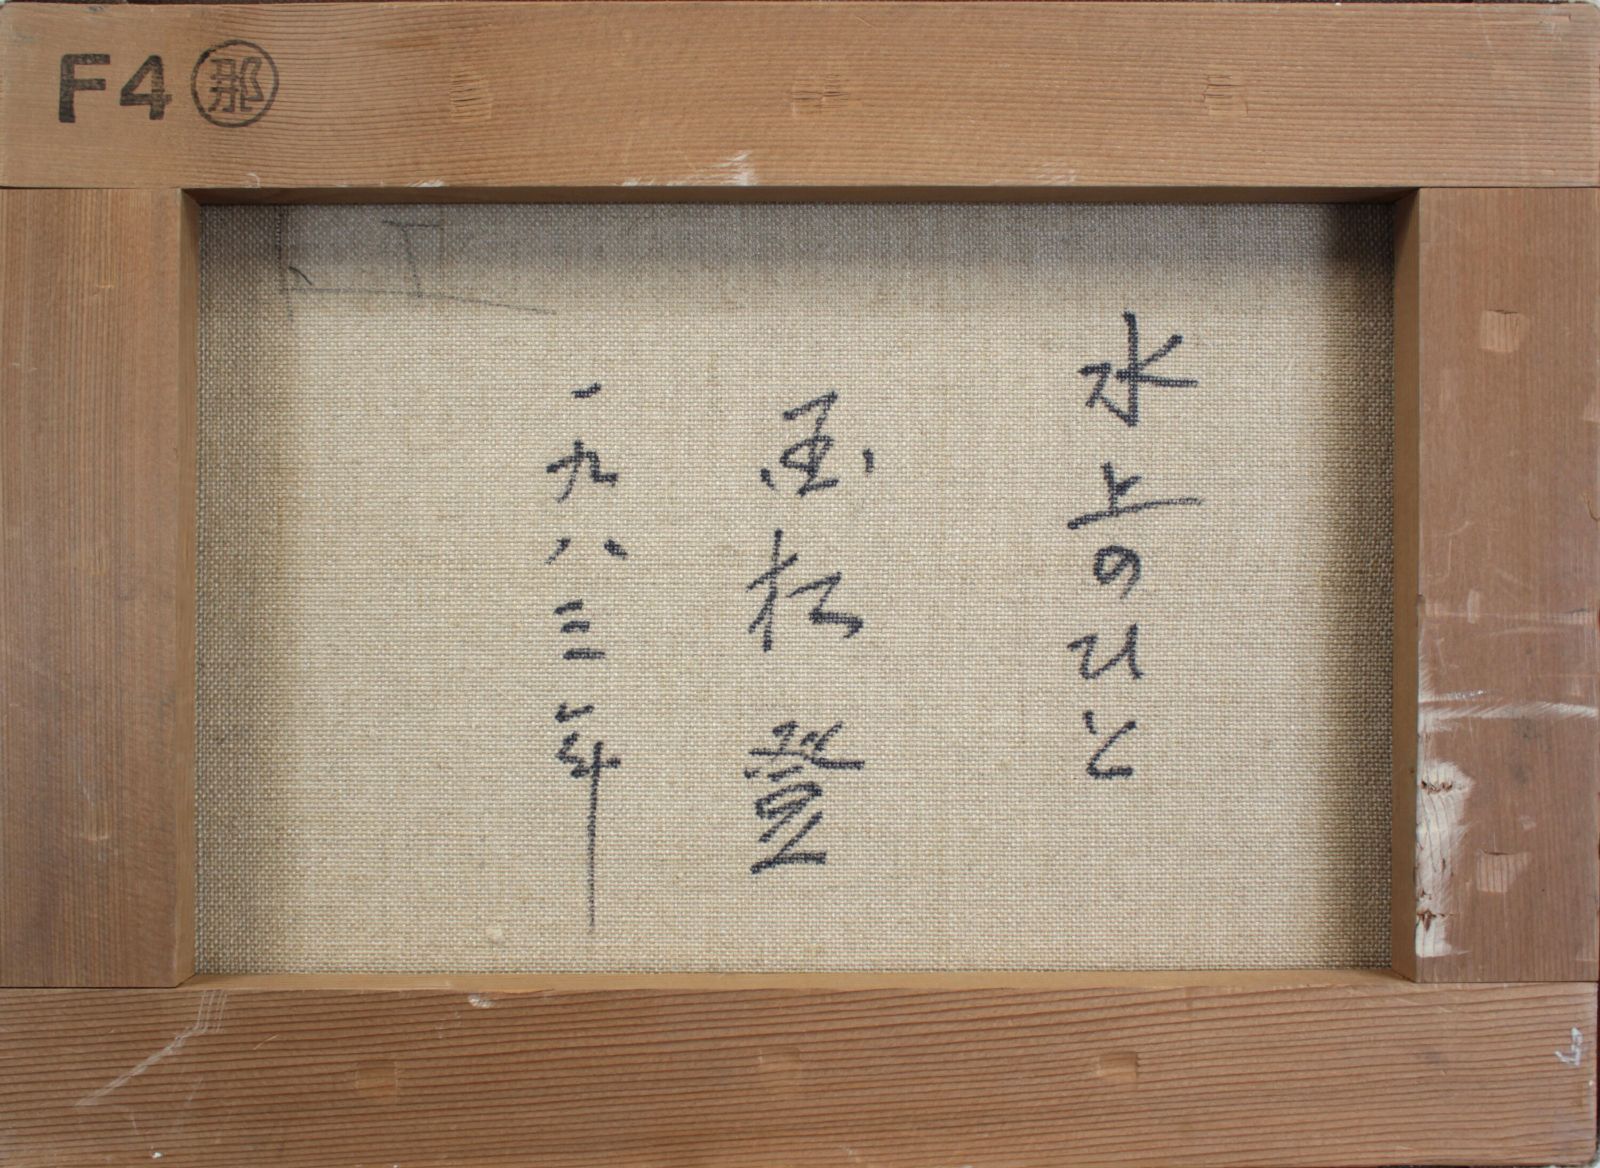 F4 那
水上のひと
国松 登
一九八三年